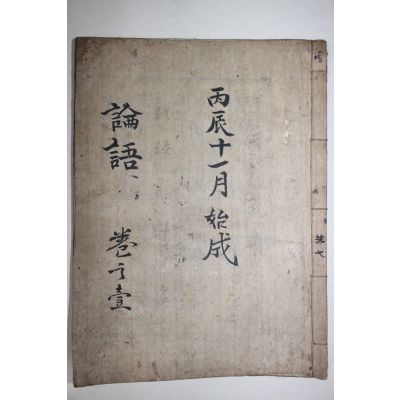 丙辰十一月 始成
論語 卷之壹